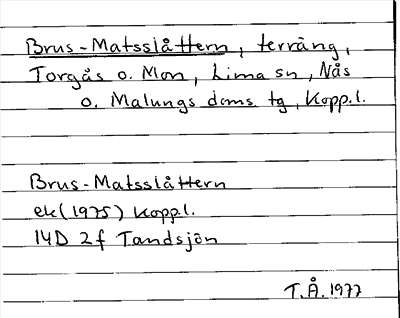 Brus-Matsslåttern, terräng,
Torgås o. Mon, Lima sn, Nås
o. Malungs doms. tg, Kopp.l.
Brus-Matsslåttern
ek (1975) Kopp.l.
14D 2f Tandsjön
T.Å. 1977